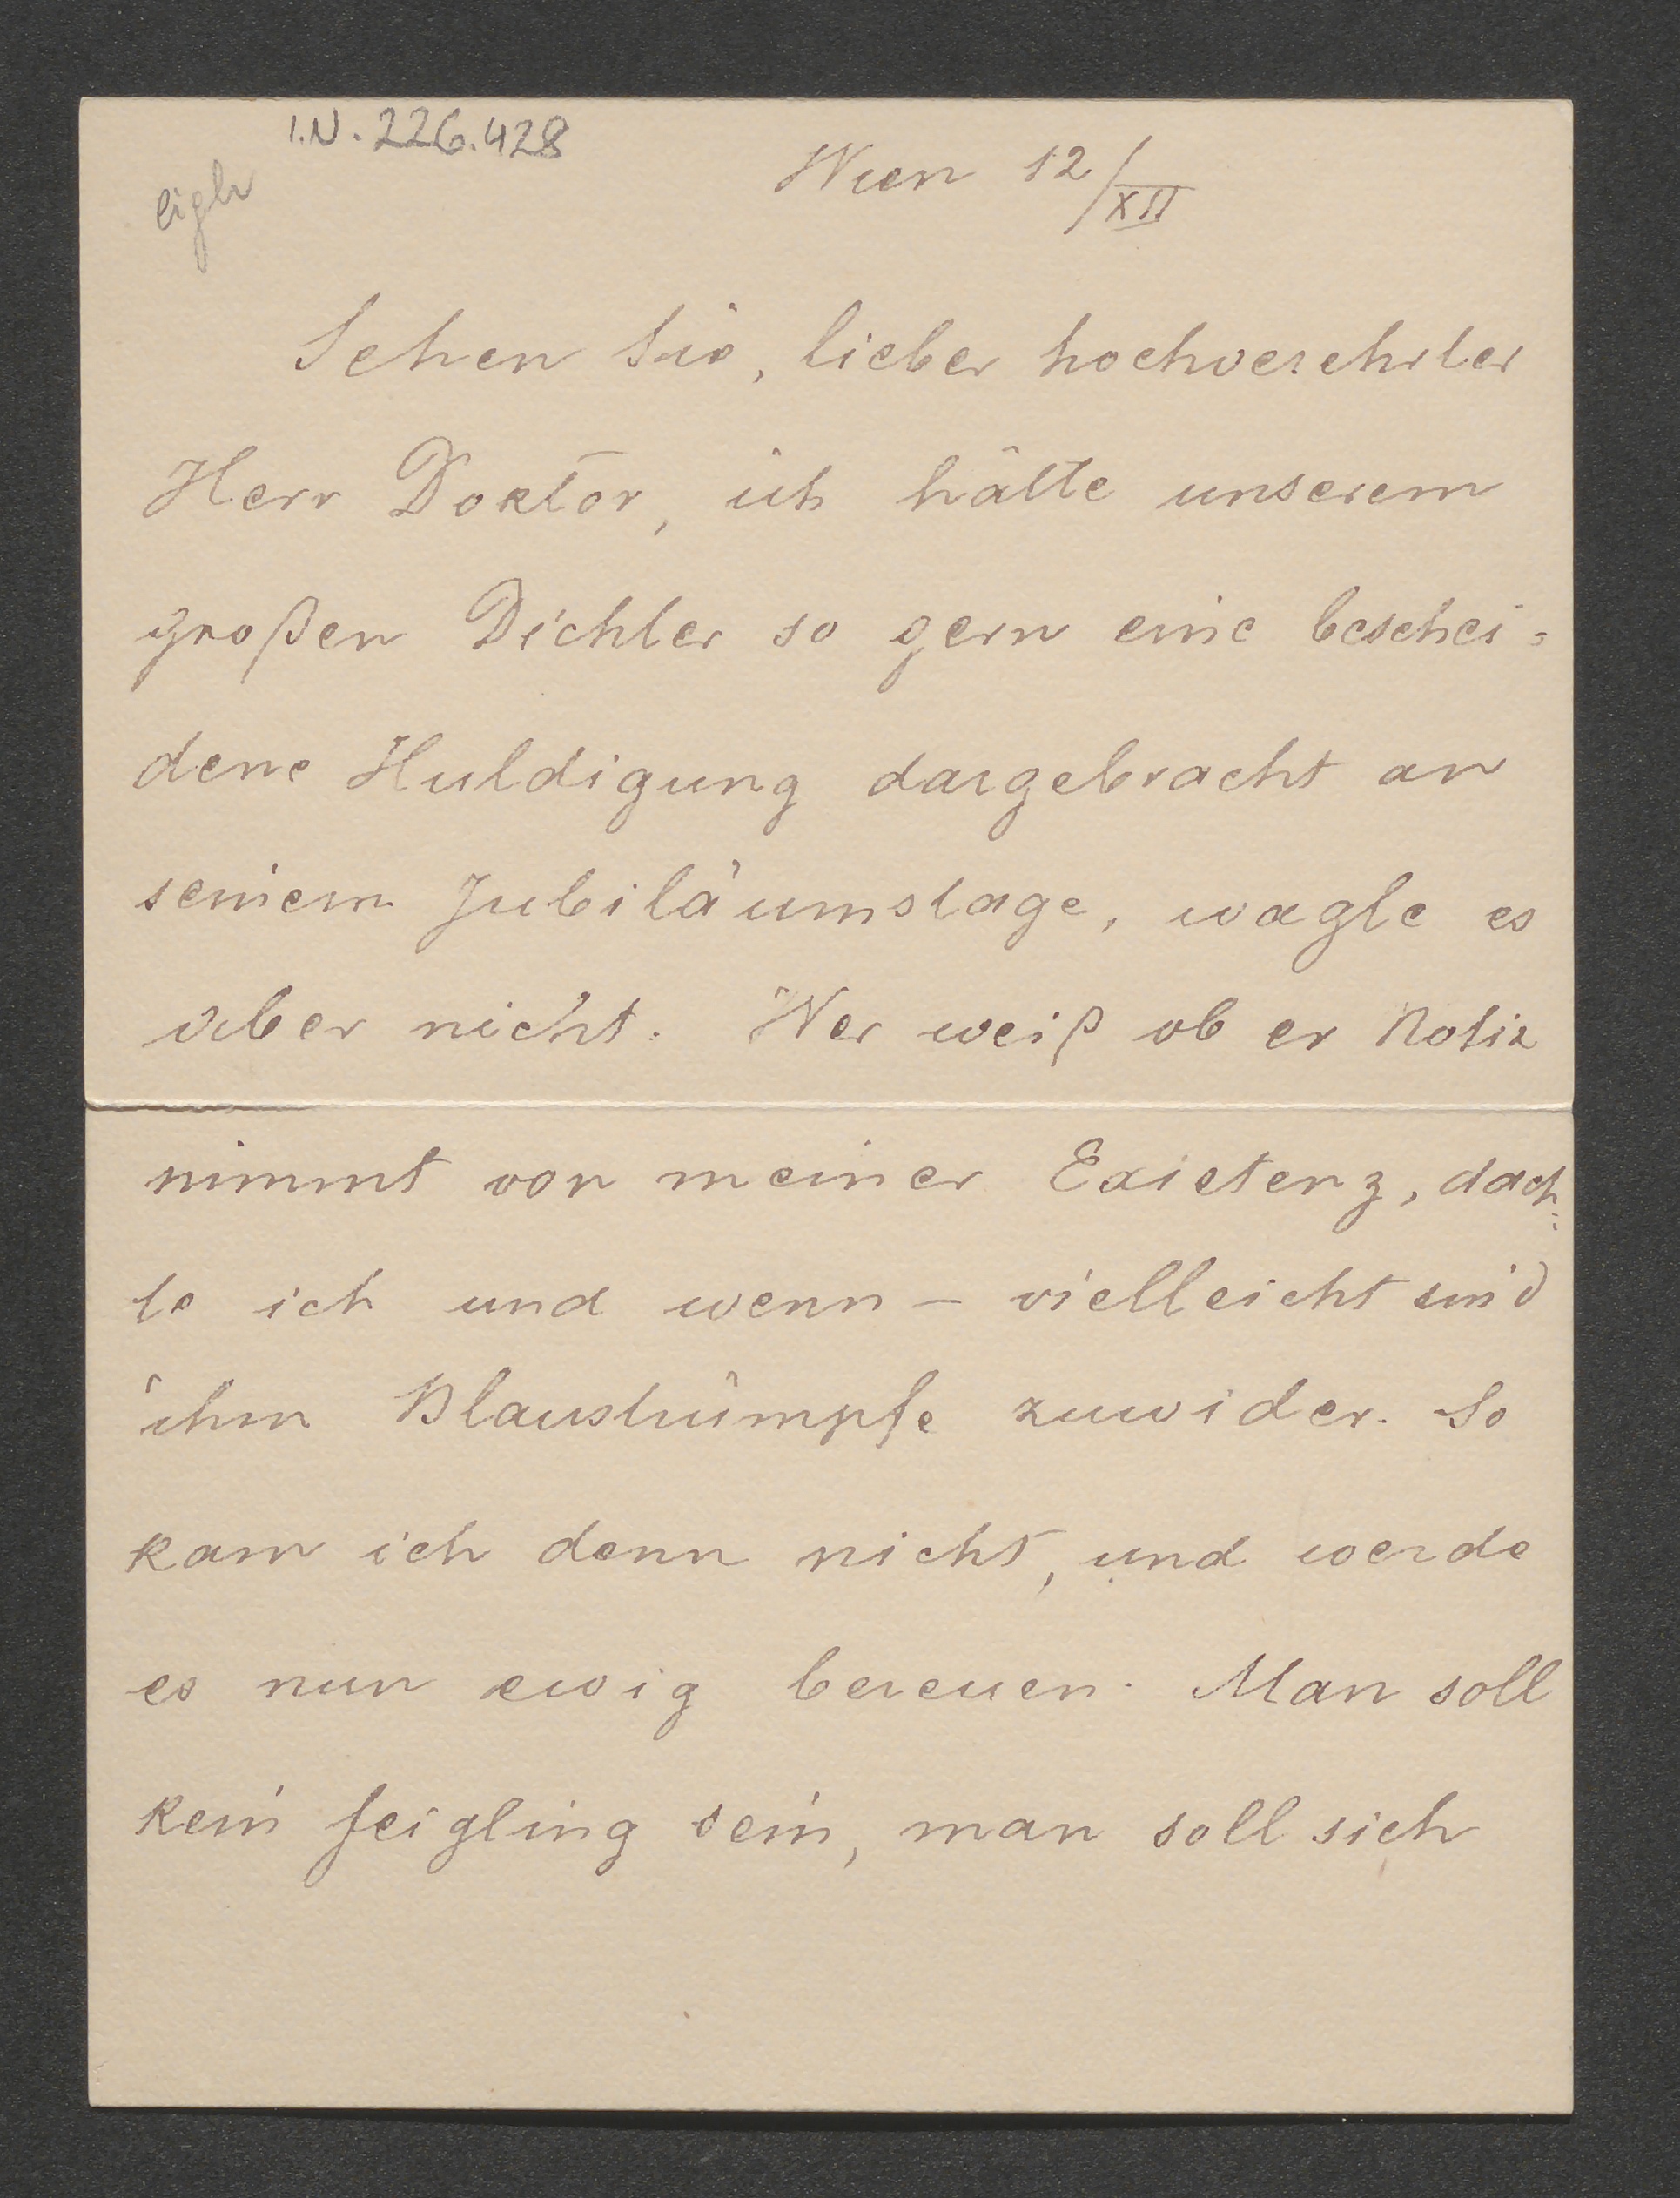 I.N. 226.428
Wien 12/XII
Sehen Sie, lieber hochverehrter
Herr Doktor, ich hätte unserem
großen Dichter so gern eine beschei=
dene Huldigung dargebracht an
seinem Jubiläumstage, wagte es
aber nicht. Wer weiß ob er Notiz
nimmt von meiner Existenz, dach=
te ich und wenn – vielleicht sind
ihm Blaustrümpfe zuwider. So
kam ich denn nicht, und werde
es nun ewig bereuen. Man soll
kein feigling sein, man soll sich